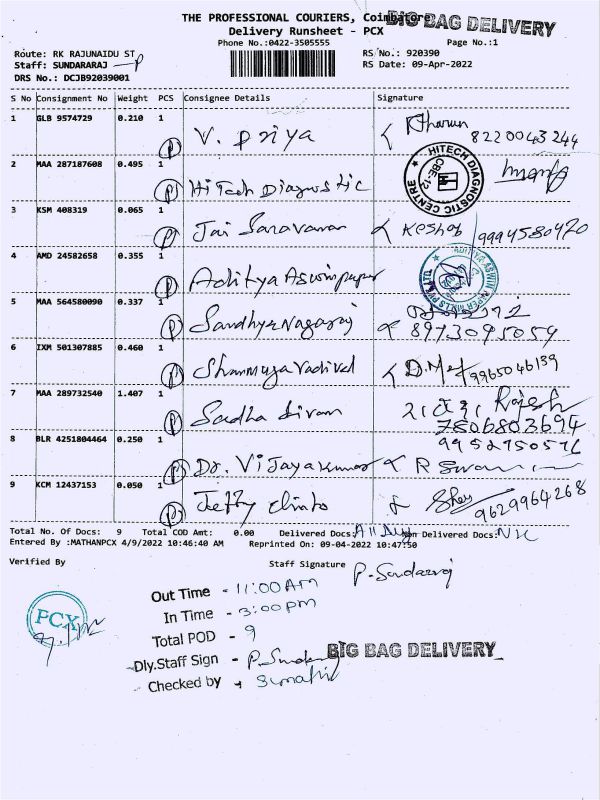 THE PROFESSIONAL COURIERS, Coimbatore
BIG BAG DELIVERY
Delivery Runsheet - PCX
Phone No.:0422-3505555
Page No.:1
Route: RK RAJUNAIDU ST
RS No.: 920390
Staff: SUNDARARAJ
RS Date: 09-Apr-2022
DRS No.: DCJB92039001
S No Consignment No Weight PCS Consignee Details Signature
1 GLB 9574729 0.210 1 V. Priya Tharun 8220043244
2 MAA 287187608 0.495 1 HiTech Diagnostic HITECH DIAGNOSTIC CENTRE CBE-12
3 KSM 408319 0.065 1 Jai Saravanan Keshav 9994580420
4 AMD 24582658 0.355 1 Aditya Aswinpaper
5 MAA 564580090 0.337 1 Sandhya Nagaraj 8973095059
6 IXM 501307885 0.460 1 Shanmuga Vadivel 9965046139
7 MAA 289732540 1.407 1 Sadha Sivam Rajesh
7806803694
8 BLR 4251804464 0.250 1 Dr. Vijayakumar 9952750576
9 KCM 12437153 0.050 1 Jetty Clinto 9629964268
Total No. Of Docs: 9 Total COD Amt: 0.00 Delivered Docs: Non Delivered Docs:
Entered By :MATHANPCX 4/9/2022 10:46:40 AM Reprinted On: 09-04-2022 10:47:50
Verified By
Staff Signature P. Sundarraj
Out Time - 11:00 AM
In Time - 3:00 pm
PCX
Total POD - 9
BIG BAG DELIVERY
Dly.Staff Sign - P. Sundarraj
Checked by